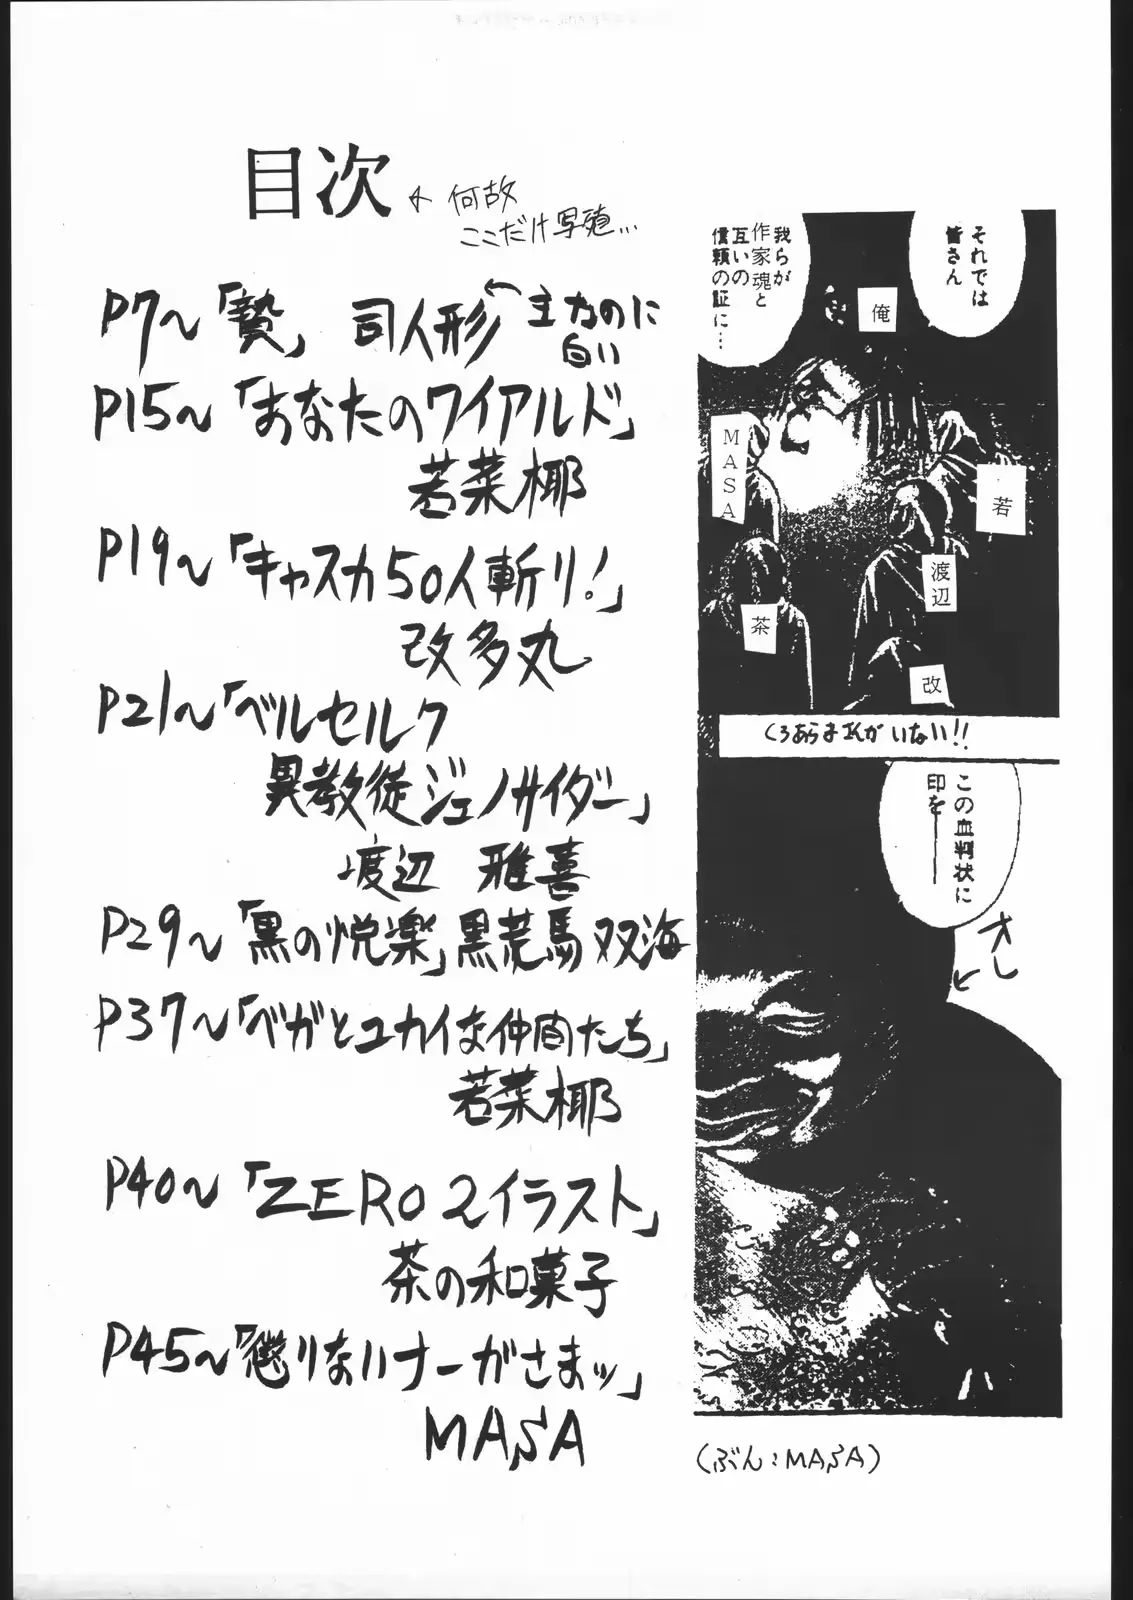 目次
何故
ここだけ写殖…
P7〜「贄」 司人形
主力のに
白い
P15〜「あなたのワイアルド」
若菜椰
P19〜「キャスカ50人斬り!」
改多丸
P21〜「ベルセルク
異教徒ジェノサイダー」
渡辺 雅喜
P29〜「黒の悦楽」黒荒馬 双海
P37〜「ベガとユカイな仲間たち」
若菜椰
P40〜「ZERO2イラスト」
茶の和菓子
P45〜「懲りないナーガさまッ」
MASA
それでは
皆さん
我らが
作家魂と
互いの
信頼の証に…
俺
MASA
若
渡辺
茶
改
くろあらまさんがいない!!
この血判状に
印を――
オレ
(ぶん:MASA)